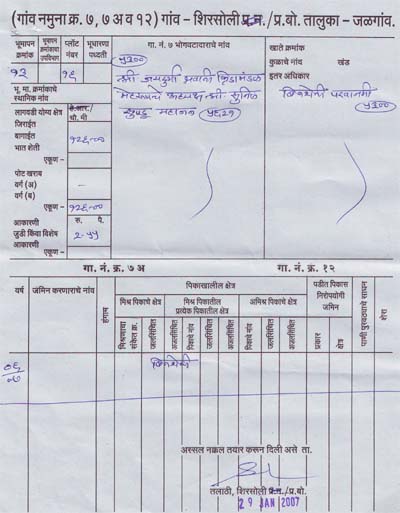 (गांव नमुना क्र. ७, ७ अ व १२) गांव - शिरसोली प्र.न. / प्र.बो. तालुका - जळगांव.
भूमापन क्रमांक
भूमापन क्रमांकाचा उपविभाग
प्लॉट नंबर
भूधारणा पध्दती
गा. नं. ७ भोगवटादाराचे नांव
५३००
खाते क्रमांक
कुळाचे नांव
खंड
इतर अधिकार
१२
१६
श्री जयदुर्गा भवानी क्रिडामंडळ
मेहरुणचे अध्यक्ष श्री सुनिल
महाजन
बिनशेती परवानगी
५३००
भू. मा. क्रमांकाचे स्थानिक नांव
लागवडी योग्य क्षेत्र
हे. आर./ चौ. मी
जिराईत
बागाईत
१२६-००
भात शेती
एकूण -
पोट खराब
वर्ग (अ) -
वर्ग (ब)
एकूण -
१२६-००
आकारणी
रु. पै.
जुडी किंवा विशेष आकारणी
२-५५
एकूण -
गा. नं. क्र. ७ अ
गा. नं. क्र. १२
वर्ष
जमिन करणाराचे नांव
हंगाम
पिकाखालील क्षेत्र
मिश्र पिकाचे क्षेत्र
मिश्र पिकातील प्रत्येक पिकातील क्षेत्र
अमिश्र पिकाचे क्षेत्र
पडीत पिकास निरोपयोगी जमिन
पाणी पुरवठ्याचे साधन
शेरा
मिश्रणाचा संकेत क्र.
जलसिंचित
अजलसिंचित
पिकाचे नांव
जलसिंचित
अजलसिंचित
पिकाचे नांव
जलसिंचित
अजलसिंचित
प्रकार
क्षेत्र
०६/०७
बिनशेती
अस्सल नक्कल तयार करून दिली असे ता.
तलाठी, शिरसोली प्र.न./प्र.बो.
29 JAN 2007